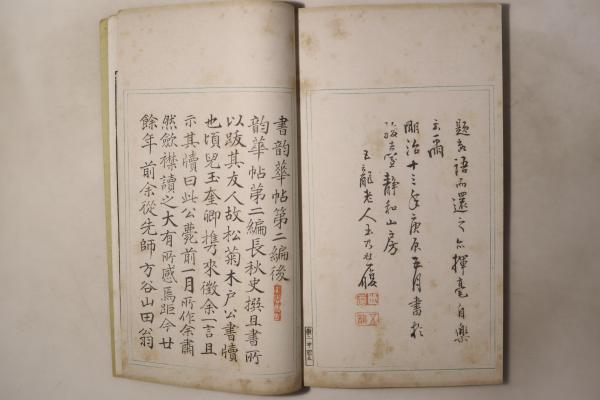 題数語而還之亦揮毫自樂
云爾
明治十三年庚辰五月書於
静和山房
老人
書韵華帖第二編後
韵華帖第二編長秋史撰且書所
以跋其友人故松菊木戸公書牘
也頃兒玉奎卿携来徴余一言且
示其牘曰此公薨前一月所作余肅
然歛襟讀之大有所感焉距今廿
餘年前余從先師方谷山田翁